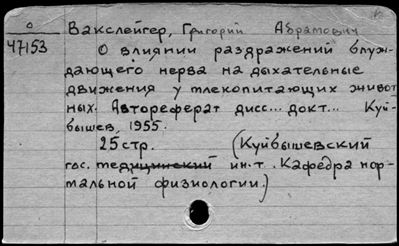 0
47153
Вакслейгер, Григорий Абрамович
О влиянии раздражений блуж-
дающего нерва на дыхательные
движения у млекопитающих живот
ных. Автореферат дисс... докт... Куй-
бышев, 1955.
25 стр. (Куйбышевский
гос. медицинский ин-т. Кафедра нор-
мальной физиологии.)